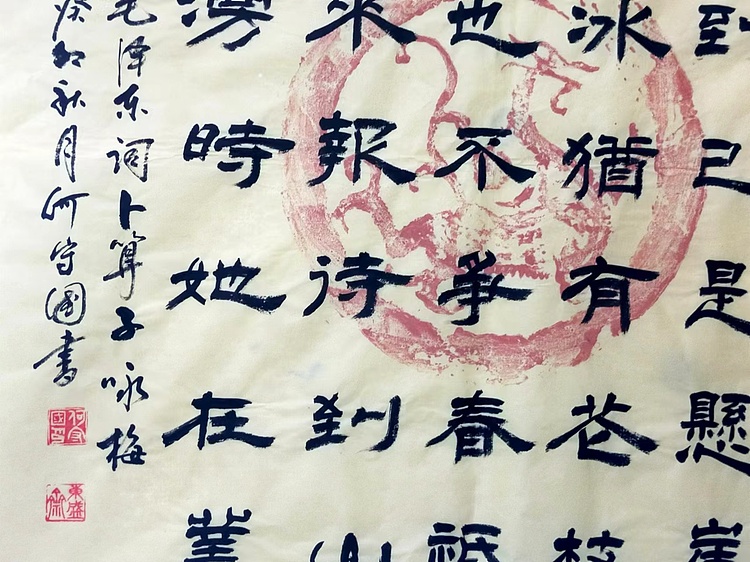 到已是懸崖
冰猶有花枝
也不爭春祗
來報待到山
漫時她在叢
毛泽东词卜算子咏梅
癸卯秋月何守國書
何守國印